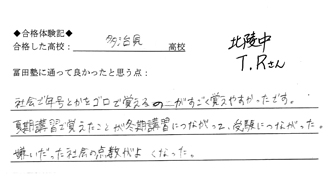 ◆合格体験記◆
合格した高校： 多治見 高校
北陵中
T.Rさん
冨田塾に通って良かったと思う点：
社会で年号とかをゴロで覚えるのがすごく覚えやすかったです。
夏期講習で覚えたことが冬期講習につながって、受験につながった。
嫌いだった社会の点数がよくなった。